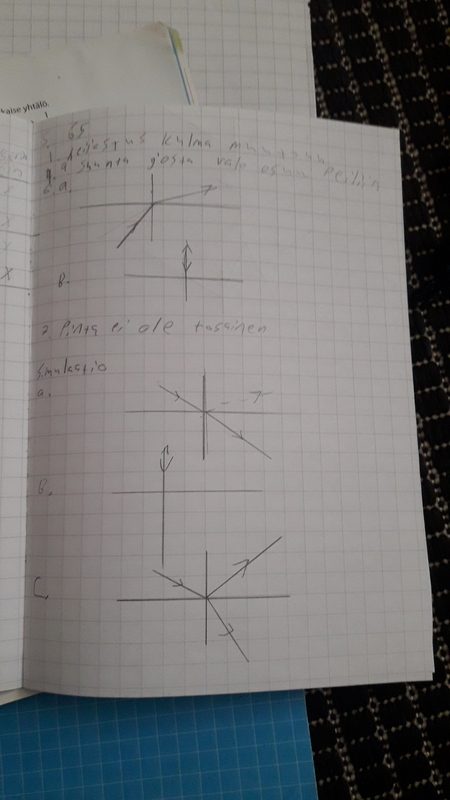 kaise yhtälö.
S. 65
1. heijastus kulma muuttuu
a. suunta josta valo osuu Peiliin
2. a.
B.
7. Pinta ei ole tasainen
Simulaatio
a.
B.
C.
X
X
X